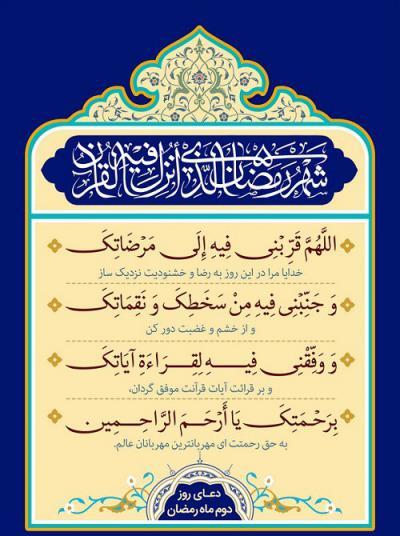 شَهْرُ رَمَضَانَ الَّذِي أُنْزِلَ فِيهِ الْقُرْآنُ
اللَّهُمَّ قَرِّبْنِی فِیهِ إِلَی مَرْضَاتِکَ
خدایا مرا در این روز به رضا و خشنودیت نزدیک ساز
وَ جَنِّبْنِی فِیهِ مِنْ سَخَطِکَ وَ نَقِمَاتِکَ
و از خشم و غضبت دور کن
وَ وَفِّقْنِی فِیهِ لِقِرَاءَةِ آیَاتِکَ
و بر قرائت آیات قرآنت موفق گردان،
بِرَحْمَتِکَ یَا أَرْحَمَ الرَّاحِمِین
به حق رحمتت ای مهربانترین مهربانان عالم.
دعای روز
دوم ماه رمضان